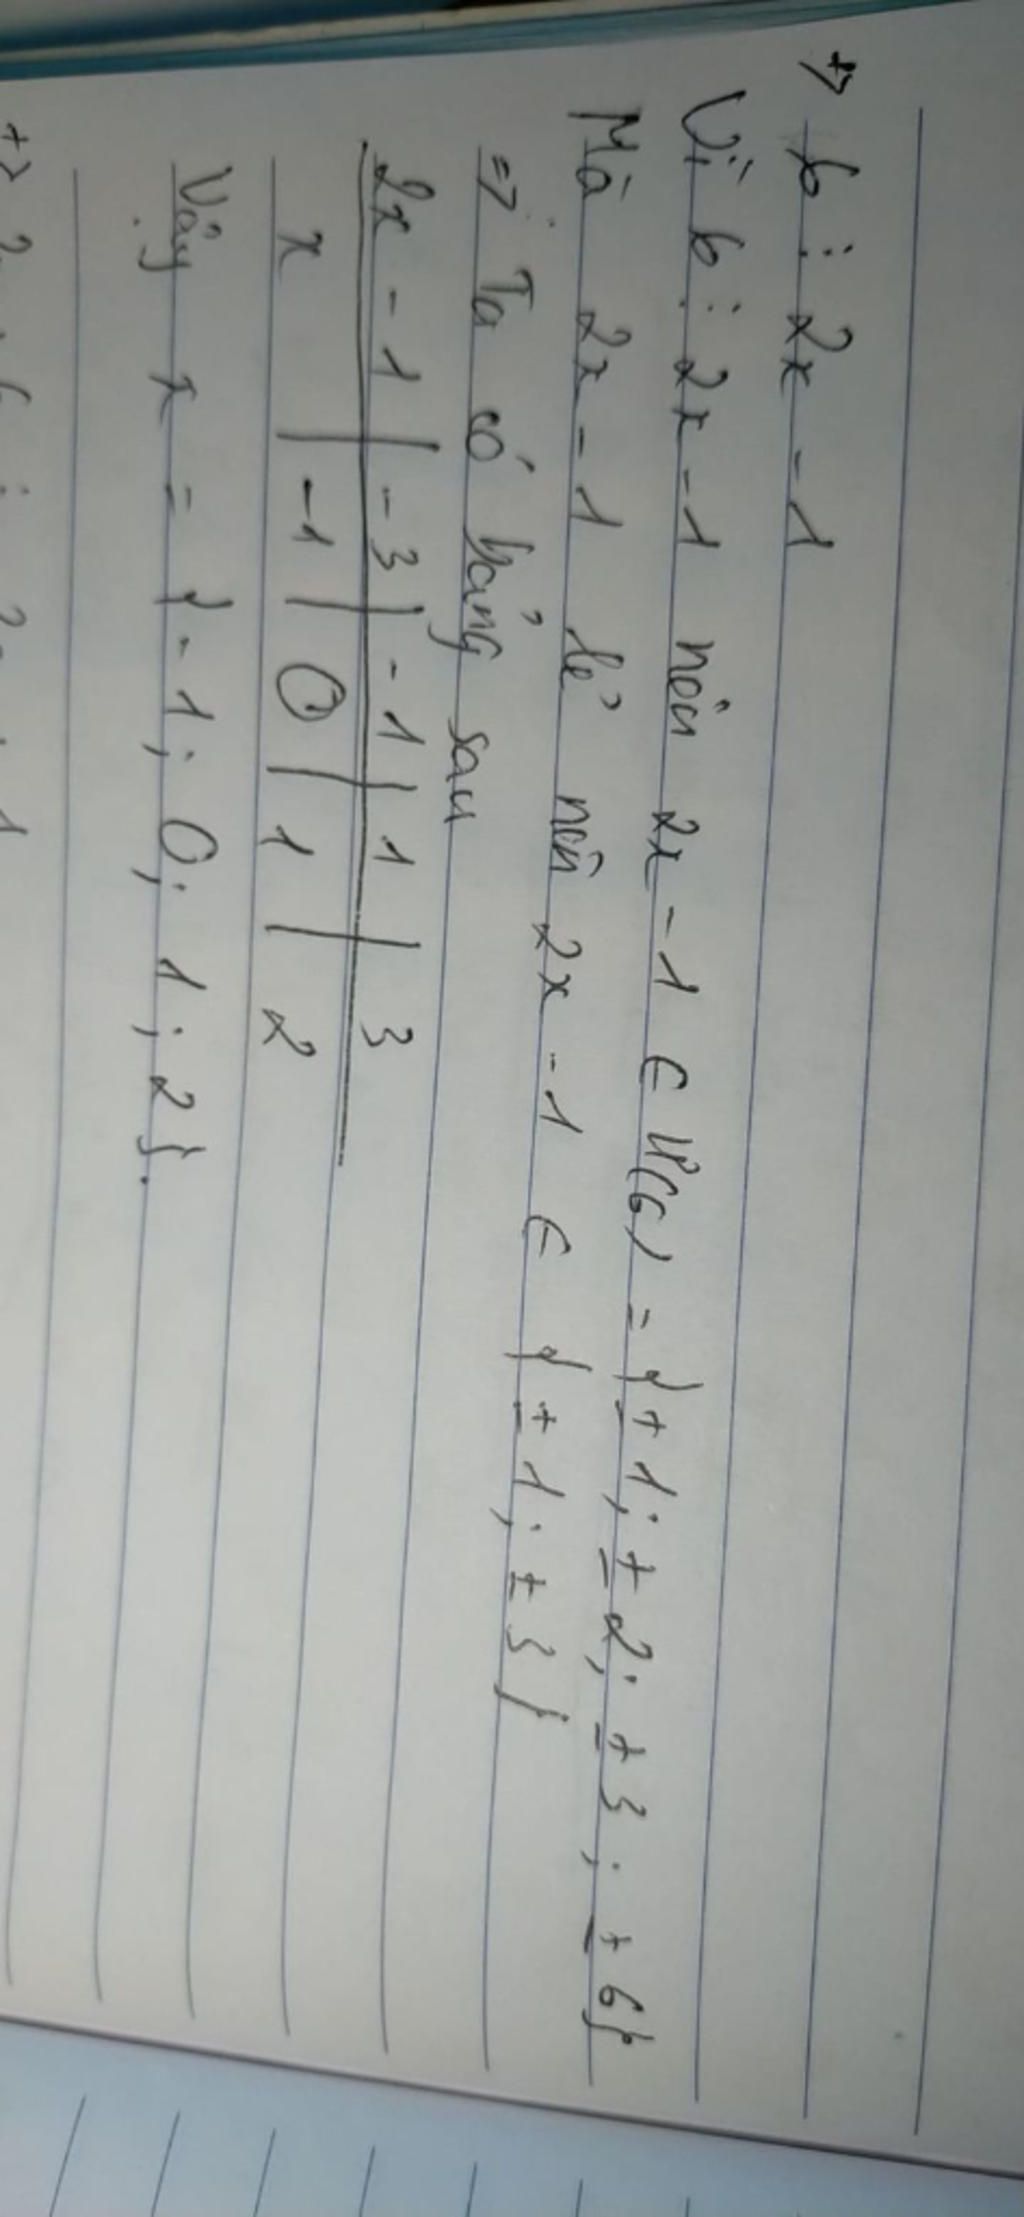 +> 6 ⋮ 2x - 1
Vì 6 ⋮ 2x - 1 nên 2x - 1 ∈ Ư(6) = {±1; ±2; ±3; ±6}
Mà 2x - 1 lẻ nên 2x - 1 ∈ {±1; ±3}
=> Ta có bảng sau
2x - 1 | -3 | -1 | 1 | 3
x | -1 | 0 | 1 | 2
Vậy x = {-1; 0; 1; 2}.